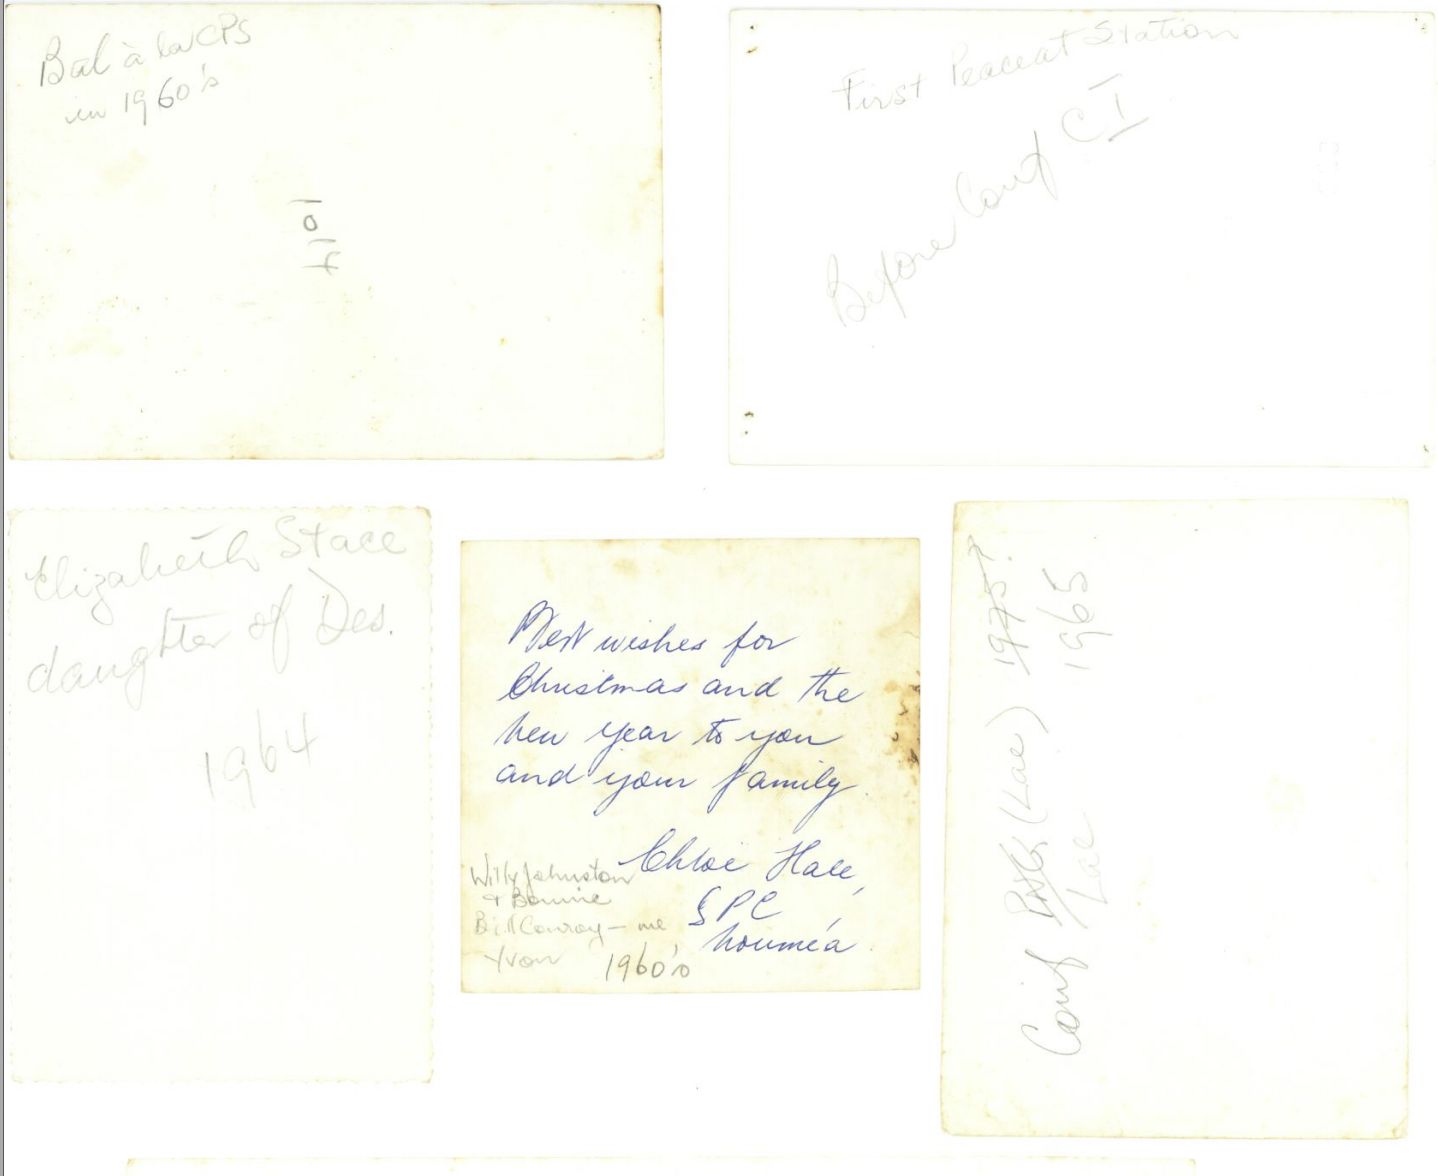 Bal à la CPS
in 1960's
1014
First Peaceat Station
Before Conf C I
Elizabeth Stace
daughter of Des.
1964
Best wishes for
Christmas and the
new year to you
and your family.
Chloé Hale,
SPC,
Nouméa.
Willy Johnston
+ Bonnie
Bill Conroy - me
Yvon
1960's
Conf PNG (Lae) 1975?
Lae 1965